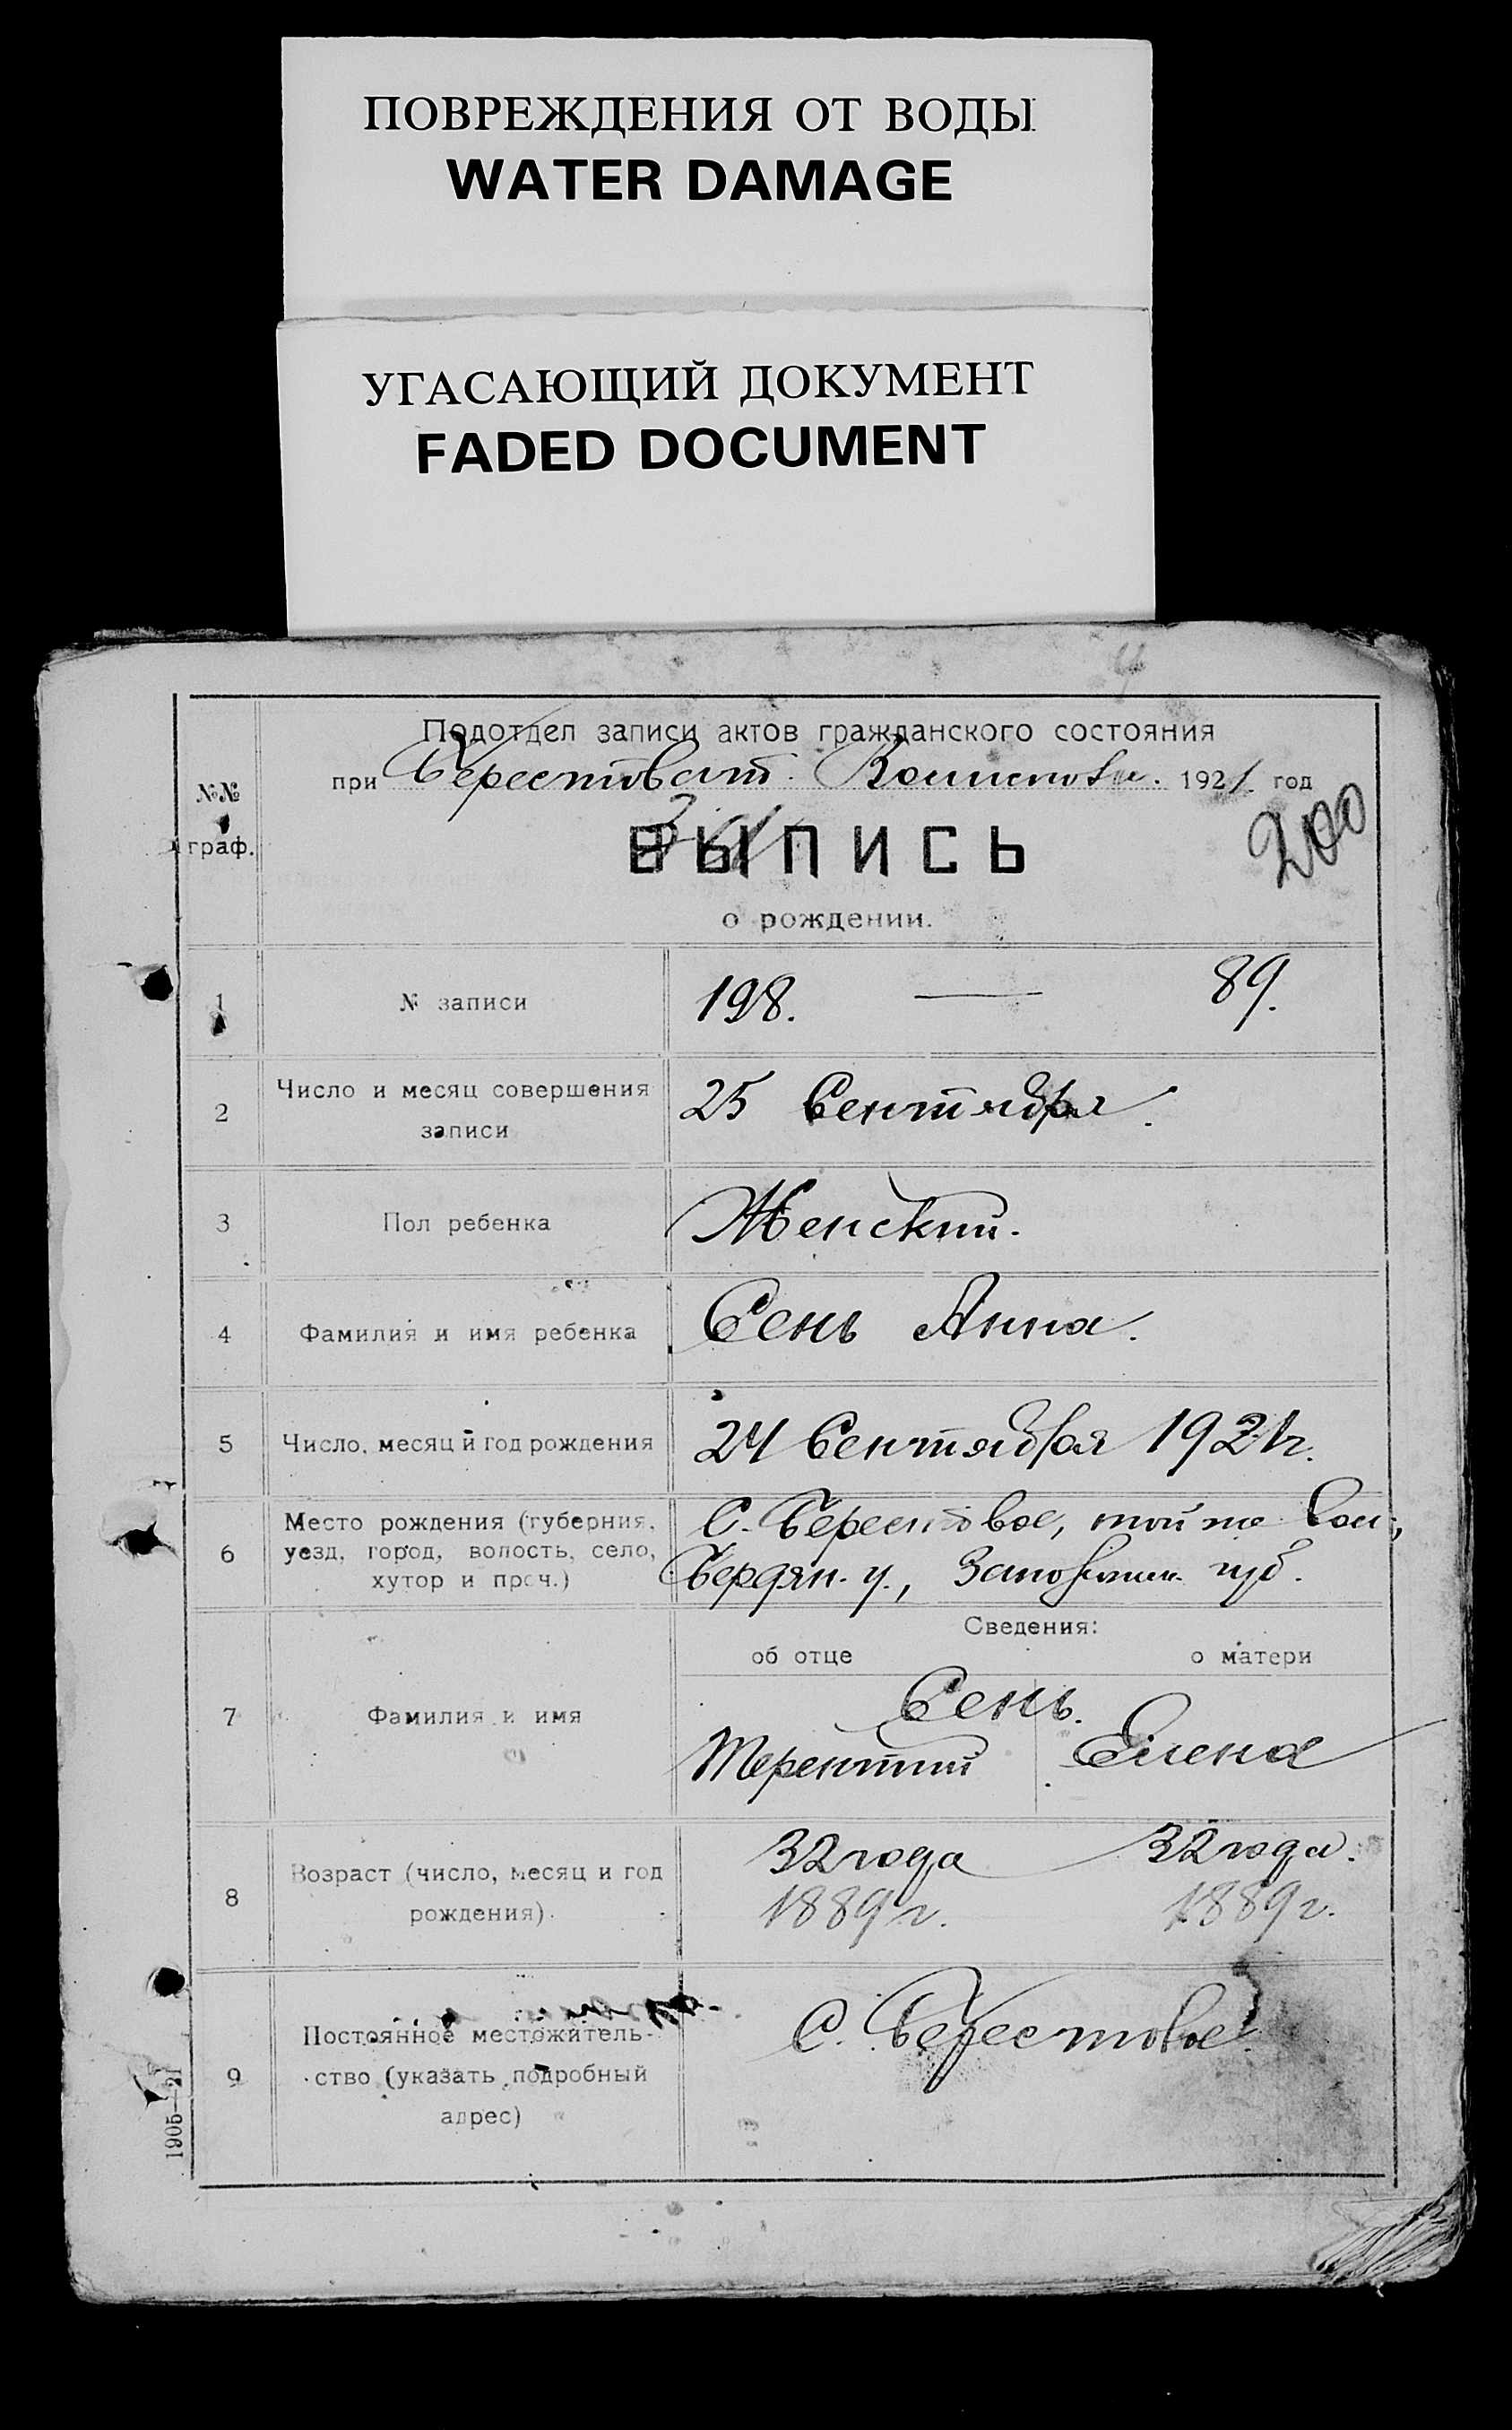 ПОВРЕЖДЕНИЯ ОТ ВОДЫ
WATER DAMAGE
УГАСАЮЩИЙ ДОКУМЕНТ
FADED DOCUMENT
Подотдел записи актов гражданского состояния
при Берестоват. 1921 год
№№
граф.
200
ВЫПИСЬ
о рождении.
1 № записи 198. — 89.
2 Число и месяц совершения
записи
25 Сентября.
3 Пол ребенка Женский.
4 Фамилия и имя ребенка Сень Анна.
5 Число, месяц и год рождения 24 Сентября 1921 г.
6 Место рождения (губерния,
уезд, город, волость, село,
хутор и проч.)
С. Берестовое, той же Вол.,
Бердян. у., губ.
Сведения:
об отце о матери
7 Фамилия и имя
Сень.
Терентий Елена
8 Возраст (число, месяц и год
рождения).
32 года 32 года.
1889 г. 1889 г.
9 Постоянное местожитель-
ство (указать подробный
адрес)
С. Берестовое.
1905—21